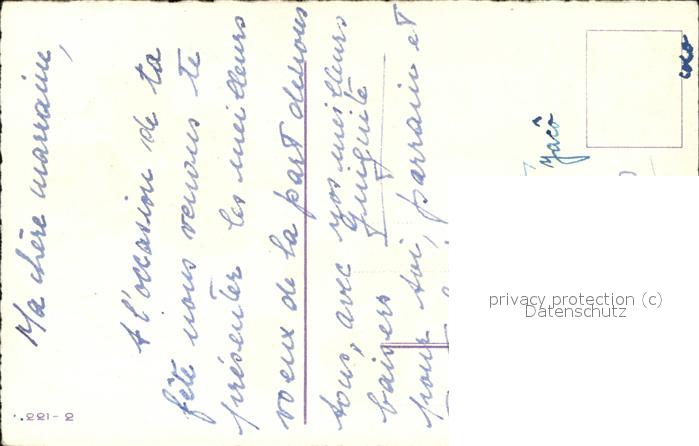 Ma chère marraine,
A l'occasion de ta
fête nous venons te
présenter les meilleurs
voeux de la part de nous
tous, avec nos meilleurs
baisers
pour toi, parrain et
coco
221-2
privacy protection (c)
Datenschutz